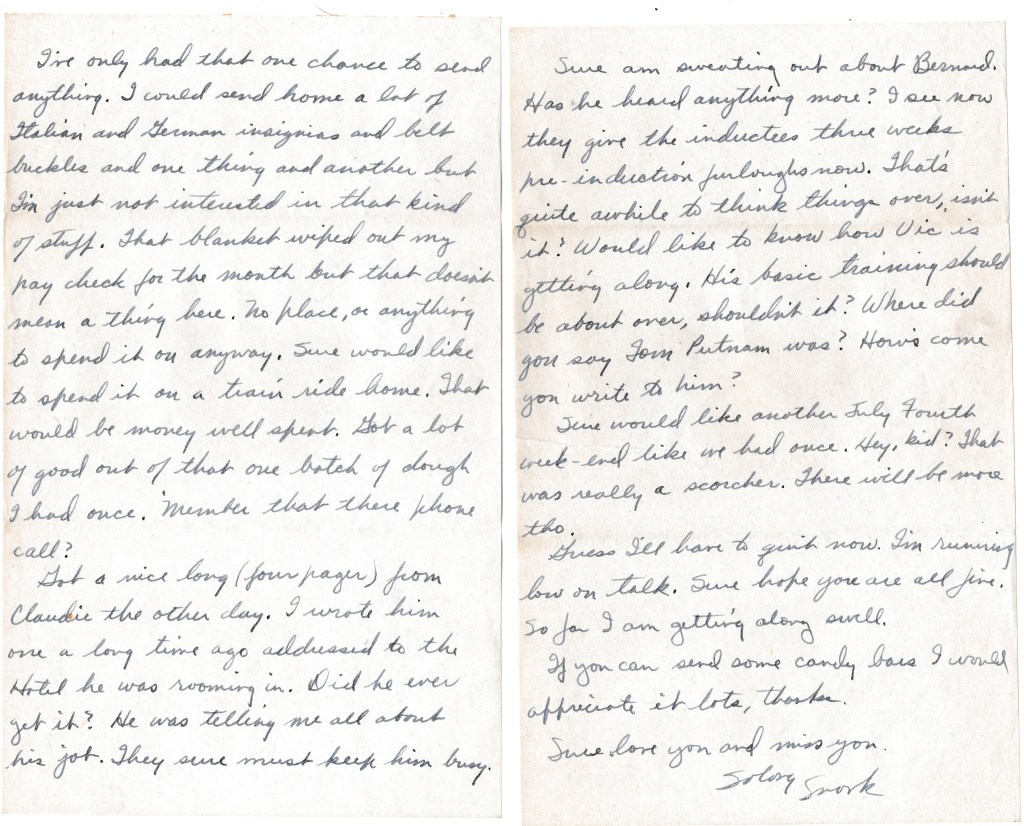 I've only had that one chance to send
anything. I could send home a lot of
Italian and German insignias and belt
buckles and one thing and another but
I'm just not interested in that kind
of stuff. That blanket wiped out my
pay check for the month but that doesn't
mean a thing here. No place, or anything
to spend it on anyway. Sure would like
to spend it on a train ride home. That
would be money well spent. Got a lot
of good out of that one batch of dough
I had once. 'Member that there phone
call?
Got a nice long (four pager) from
Claudie the other day. I wrote him
one a long time ago addressed to the
Hotel he was rooming in. Did he ever
get it? He was telling me all about
his job. They sure must keep him busy.
Sure am sweating out about Bernard.
Has he heard anything more? I see now
they give the inductees three weeks
pre-induction furloughs now. That's
quite awhile to think things over, isn't
it? Would like to know how Vic is
getting along. His basic training should
be about over, shouldn't it? Where did
you say Tom Putnam was? How's come
you write to him?
Sure would like another July Fourth
week-end like we had once. Hey, kid? That
was really a scorcher. There will be more
tho.
Guess I'll have to quit now. I'm running
low on talk. Sure hope you are all fine.
So far I am getting along swell.
If you can send some candy bars I would
appreciate it lots, thanks.
Sure love you and miss you.